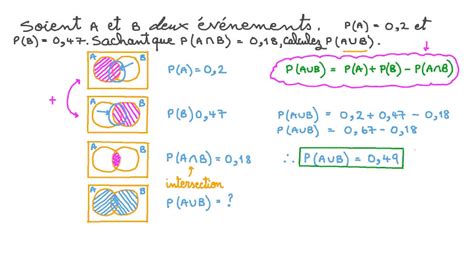 Soient A et B deux événements. P(A) = 0,2 et
P(B) = 0,47. Sachant que P(A∩B) = 0,18, calculez P(A∪B).
A B P(A) = 0,2
P(A∪B) = P(A) + P(B) - P(A∩B)
+
A B P(B) 0,47
P(A∪B) = 0,2 + 0,47 - 0,18
P(A∪B) = 0,67 - 0,18
A B P(A∩B) = 0,18
∴ P(A∪B) = 0,49
intersection
A B P(A∪B) = ?